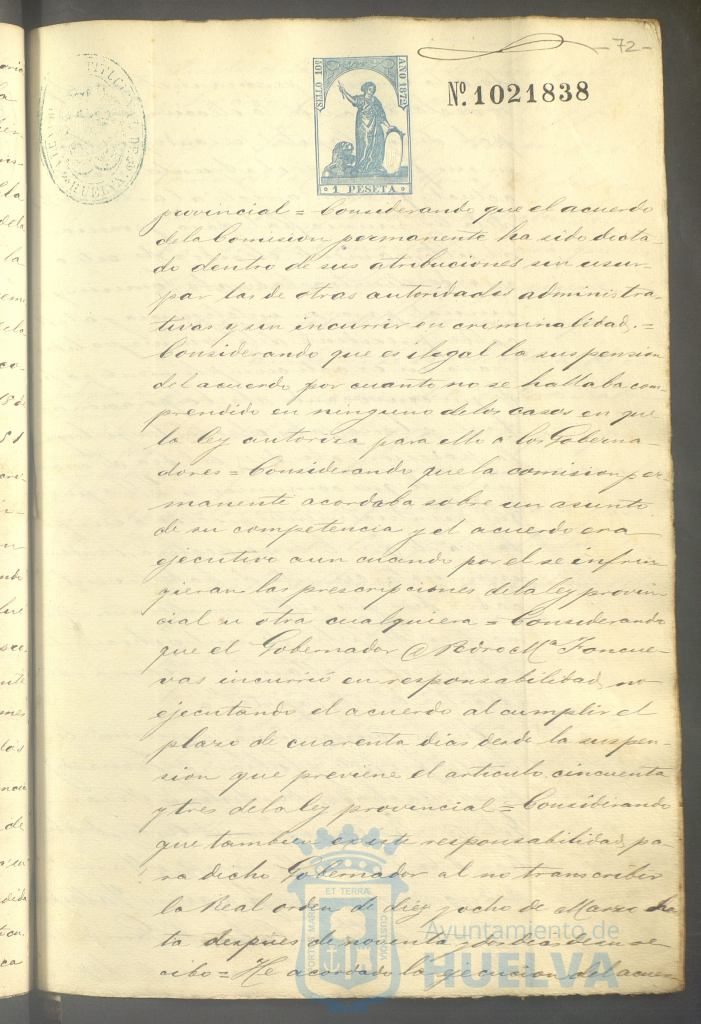 -72-
SELLO 10º
AÑO 1872
1 PESETA
Nº 1021838
HUELVA
provincial = Considerando que el acuerdo
de la Comision permanente ha sido dicta-
do dentro de sus atribuciones sin usur-
par las de otras autoridades administra-
tivas y sin incurrir en criminalidad. =
Considerando que es ilegal la suspension
del acuerdo por cuanto no se hallaba com-
prendido en ninguno de los casos en que
la ley autoriza para ello á los Goberna-
dores = Considerando que la comision per-
manente acordaba sobre un asunto
de su competencia y el acuerdo era
ejecutivo aun cuando por el se infrin
gieran las prescripciones de la ley provin
cial u otra cualquiera = Considerando
que el Gobernador Pedro Mª Foncue-
vas incurrió en responsabilidad no
ejecutando el acuerdo al cumplir el
plazo de cuarenta dias desde la suspen-
sion que previene el articulo cincuenta
y tres de la ley provincial = Considerando
que tambien existe responsabilidad pa-
ra dicho Gobernador al no transcribir
la Real orden de diez y ocho de Marzo has
ta despues de noventa y dos dias de su re-
cibo = He acordado la ejecucion del acuer
PORTUS MARIS ET TERRAE CUSTODIA
Ayuntamiento de
HUELVA